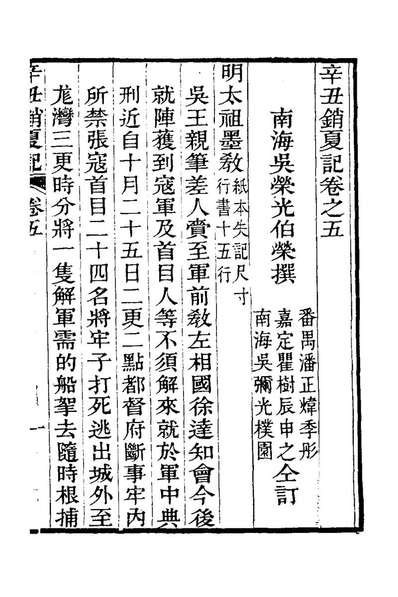 辛丑銷夏記卷之五
南海吳榮光伯榮撰
番禺潘正煒季彤
嘉定瞿樹辰申之仝訂
南海吳彌光樸園
明太祖墨敎紙本失記尺寸
行書十五行
吳王親筆差人賫至軍前敎左相國徐達知會今後
就陣獲到寇軍及首目人等不須解來就於軍中典
刑近自十月二十五日二更二點都督府斷事牢內
所禁張寇首目二十四名將牢子打死逃出城外至
龍灣三更時分將一隻解軍需的船拏去隨時根捕
辛丑銷夏記
卷五
一